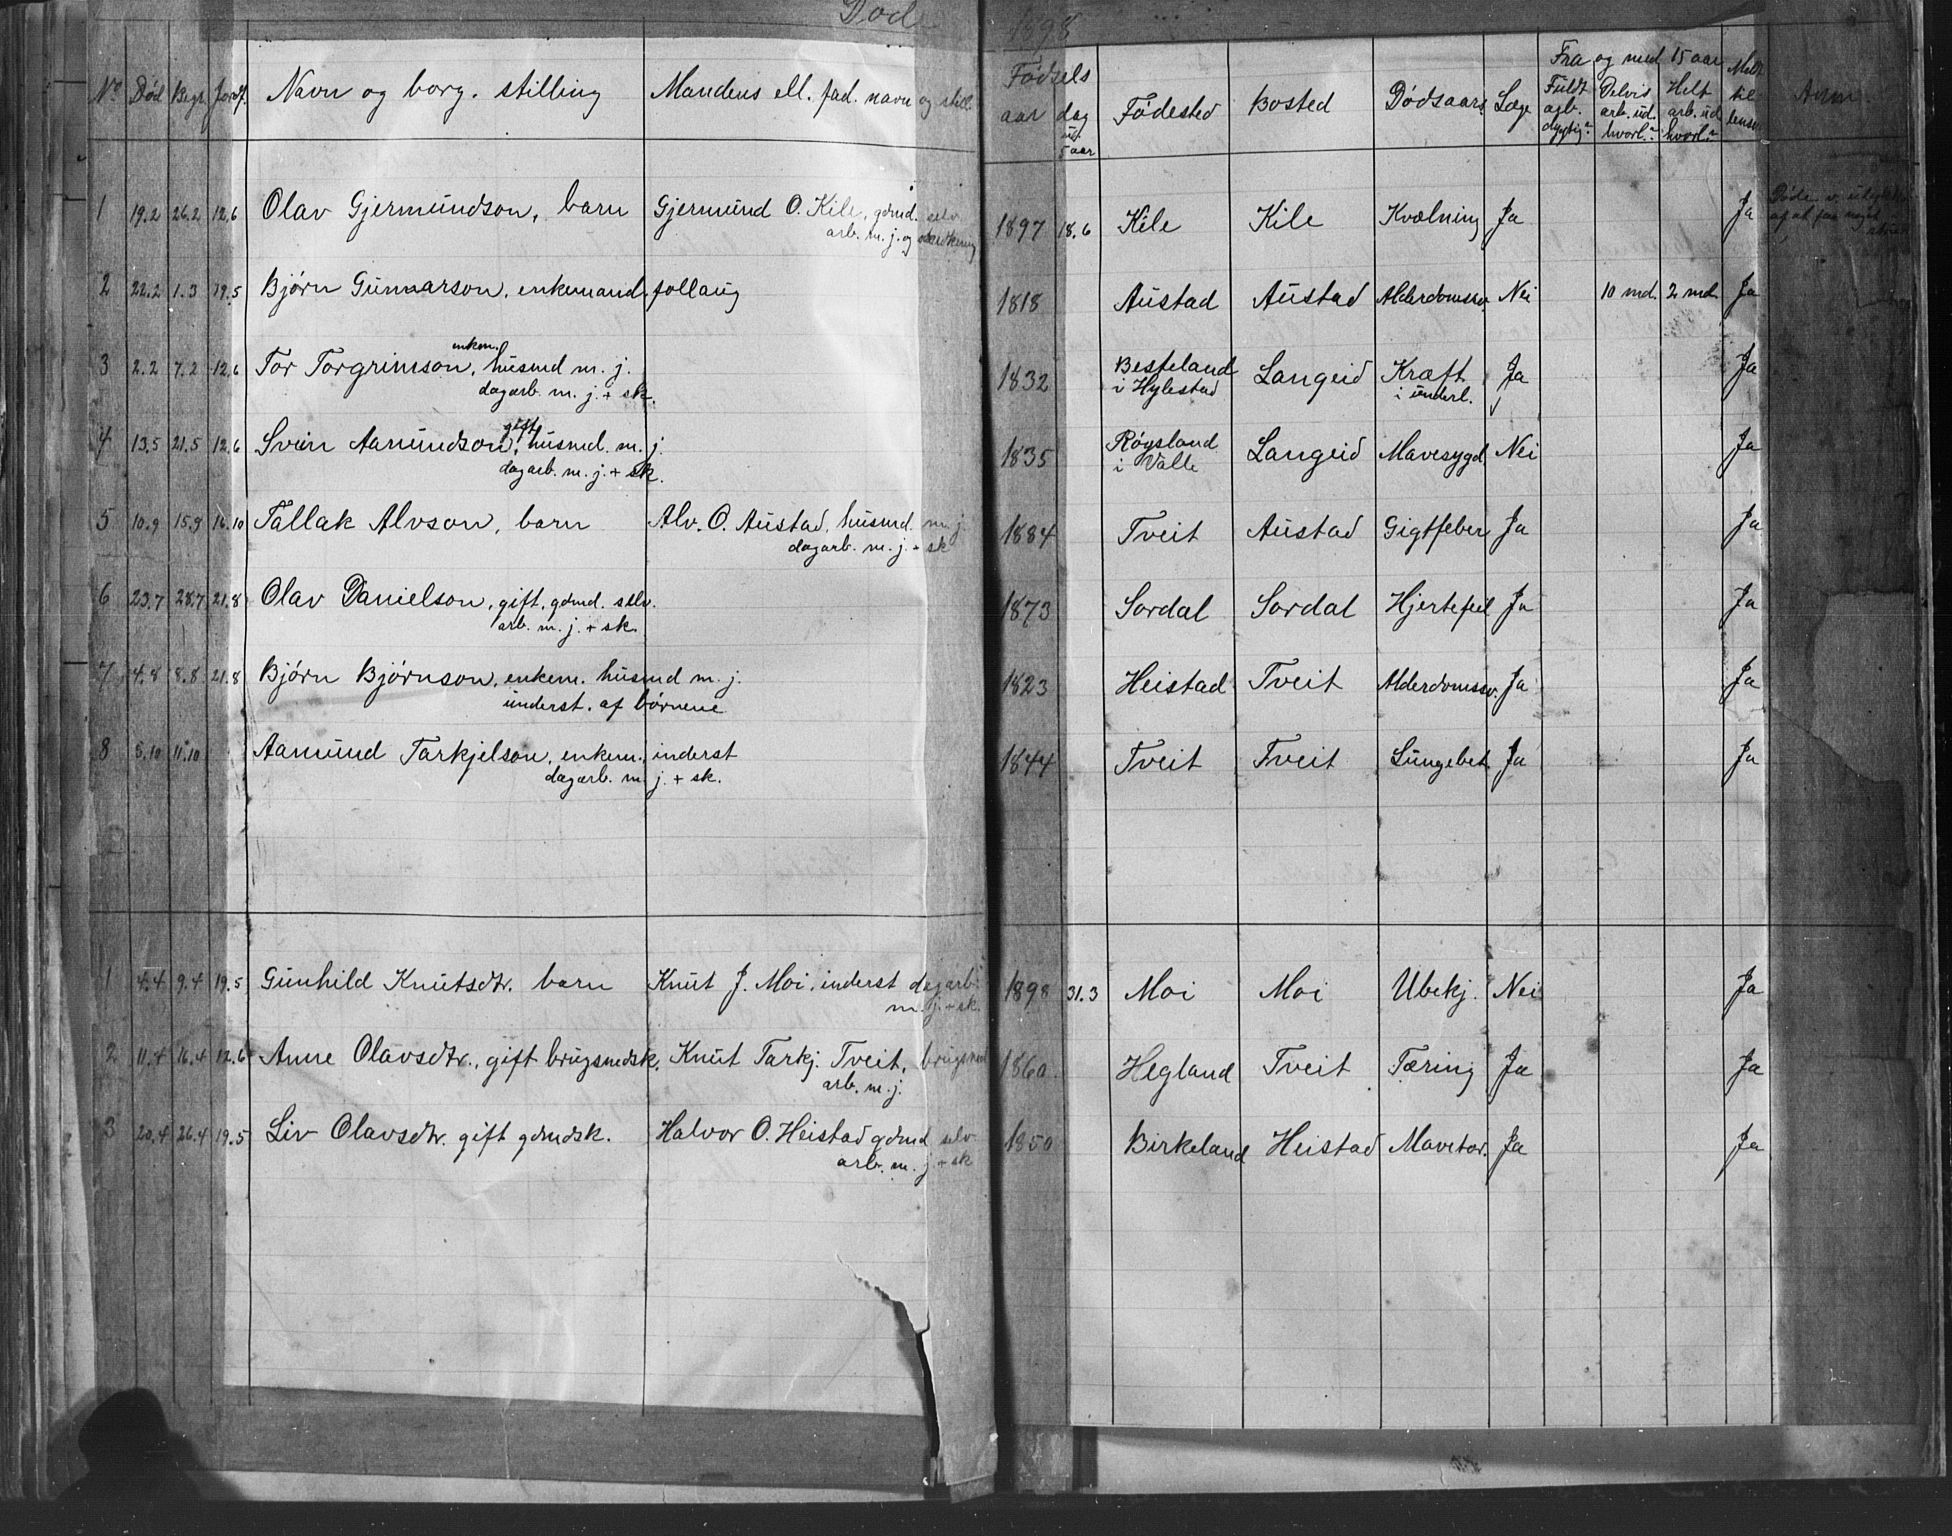 Døde 1898
No Død Begr. Jordf. Navn og borg. stilling Mandens ell. fad. navn og still. Fødsels aar dag u. 5 aar Fødested Bosted Dødsaars. Læge Fra og med 15 aar Fuldt arb. dygtig? Delvis arb. ud. hvorl.? Helt arb. ud hvorl.? Meldt til lensm. Anm.
1 19.2 26.2 12.6 Olav Gjermundson, barn Gjermund O. Kile, gdmd. selv. 1897 18.6 Kile Kile Kvælning Ja Ja Døde v.
arb. m. j. og af at faa noget
2 22.2 1.3 19.5 Bjørn Gunnarson, enkemand, follaug 1818 Austad Austad Alderdomssv. Nei 10 md. 2 md. Ja
enkem.
3 2.2 7.2 12.6 Tor Torgrimson, husmd m. j. 1832 Besteland Langeid Kræft Ja Ja
dagarb. m. j. + sk. i Hylestad i underl.
gift
4 13.5 21.5 12.6 Svein Aamundson, husmd. m. j. 1835 Røysland Langeid Mavesygd. Nei Ja
dagarb. m. j. + sk. i Valle
5 10.9 15.9 16.10 Tallak Alvson, barn Alv. O. Austad, husmd. m. j. 1884 Tveit Austad Gigtfeber Ja Ja
dagarb. m. j. + sk
6 23.7 28.7 21.8 Olav Danielson, gift, gdmd. selv. 1873 Sordal Sordal Hjertefeil Ja Ja
arb. m. j. + sk.
7 4.8 8.8 21.8 Bjørn Bjørnson, enkem. husmd m. j. 1823 Heistad Tveit Alderdomssv. Ja Ja
underst. af børnene
8 5.10 11.10 Aamund Tarkjelson, enkem., inderst 1844 Tveit Tveit Lungebet. Ja Ja
dagarb. m. j. + sk.
1 4.4 9.4 19.5 Gunhild Knutsdtr. barn Knut J. Moi, inderst dagarb. 1898 31.3 Moi Moi Ubekj. Nei Ja
m. j. + sk.
2 11.4 16.4 12.6 Anne Olavsdtr., gift brugsmdsk. Knut Tarkj. Tveit, brugsmd 1860 Hegland Tveit Tæring Ja Ja
arb. m. j.
3 20.4 26.4 19.5 Liv Olavsdtr. gift gdmdsk. Halvor O. Heistad gdmd selv 1850 Birkeland Heistad Mavetar. Ja Ja
arb. m. j. + sk